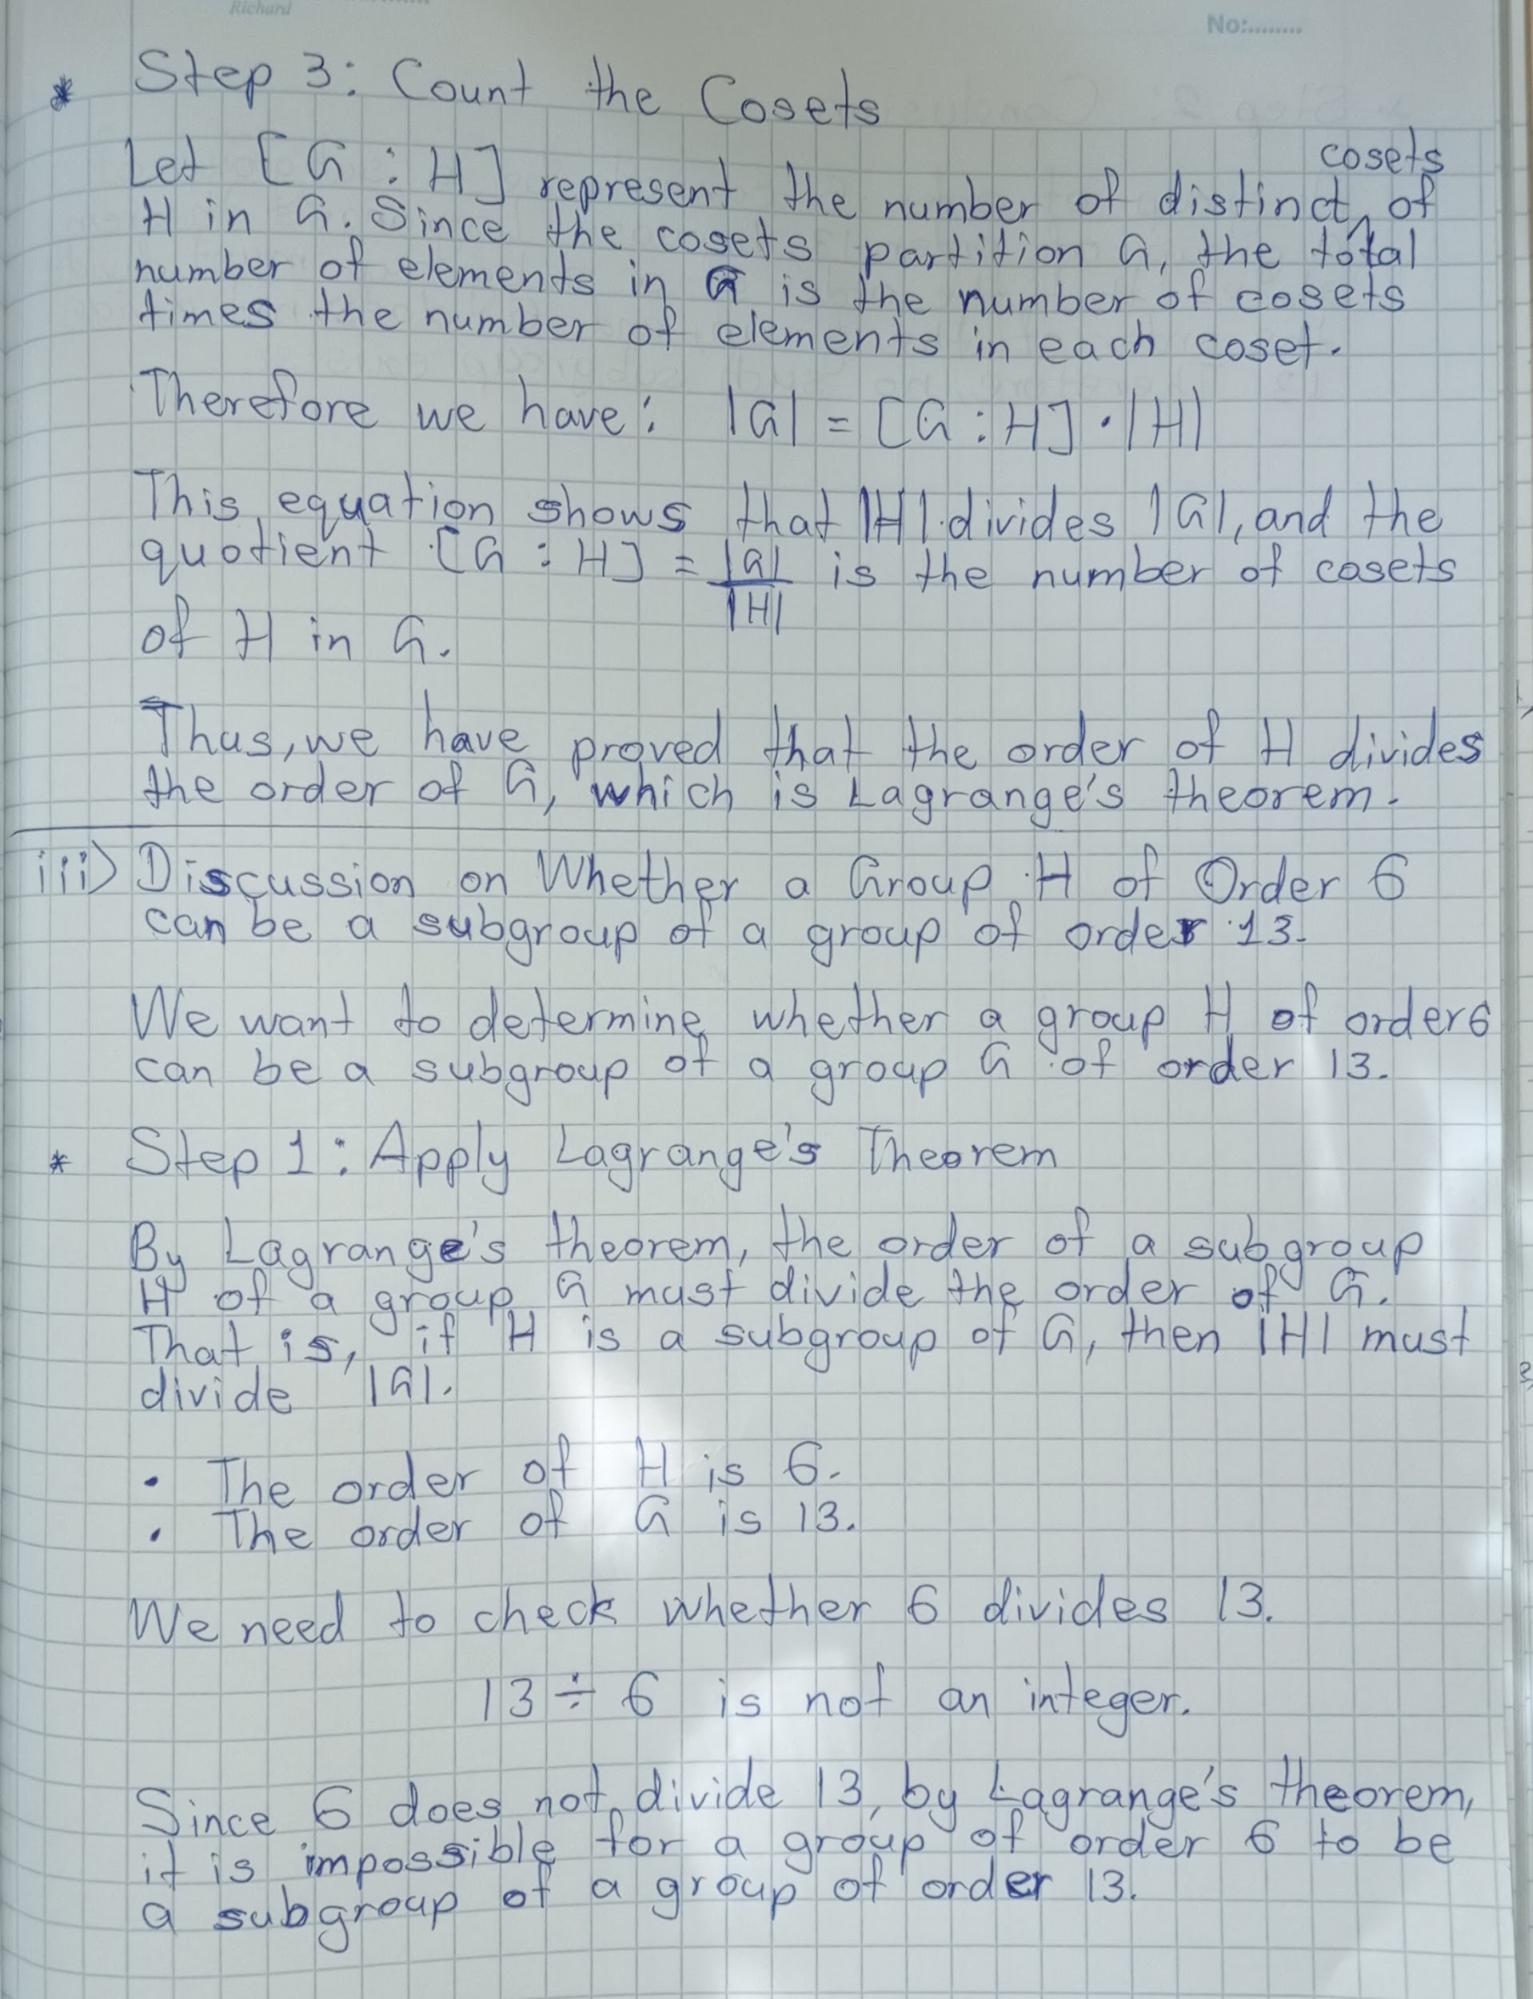 Richard
No:........
* Step 3: Count the Cosets
Let [G : H] represent the number of distinct cosets of
H in G. Since the cosets partition G, the total
number of elements in G is the number of cosets
times the number of elements in each coset.
Therefore we have: |G| = [G : H] · |H|
This equation shows that |H| divides |G|, and the
quotient [G : H] = |G| / |H| is the number of cosets
of H in G.
Thus, we have proved that the order of H divides
the order of G, which is Lagrange's theorem.
iii) Discussion on Whether a Group H of Order 6
can be a subgroup of a group of order 13.
We want to determine whether a group H of order 6
can be a subgroup of a group G of order 13.
* Step 1: Apply Lagrange's Theorem
By Lagrange's theorem, the order of a subgroup
H of a group G must divide the order of G.
That is, if H is a subgroup of G, then |H| must
divide |G|.
• The order of H is 6.
• The order of G is 13.
We need to check whether 6 divides 13.
13 ÷ 6 is not an integer.
Since 6 does not divide 13, by Lagrange's theorem,
it is impossible for a group of order 6 to be
a subgroup of a group of order 13.